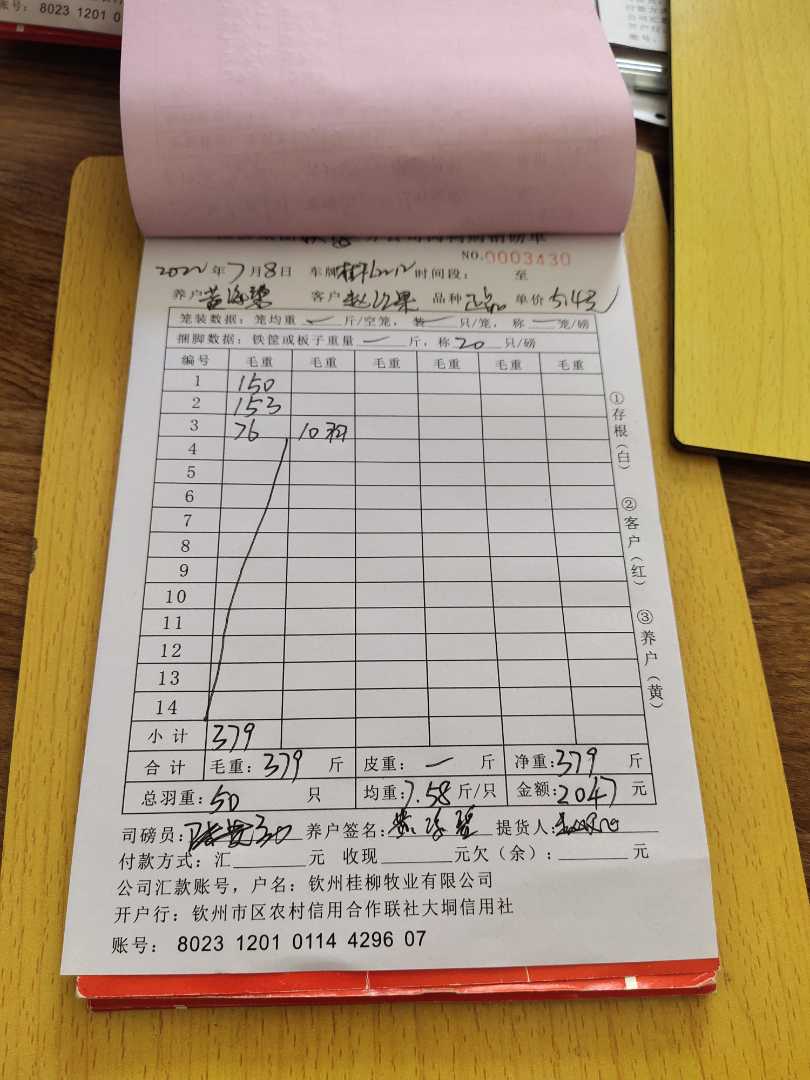 账号: 8023 1201 0
NO.0003430
2022年7月8日 车牌 时间段: 至
养户 客户 品种正品 单价5.4元
笼装数据: 笼均重一斤/空笼, 装一只/笼, 称一笼/磅
捆脚数据: 铁筐或板子重量一斤, 称20只/磅
编号 毛重 毛重 毛重 毛重 毛重 毛重
1 150
2 153
3 76 10羽
4
5
6
7
8
9
10
11
12
13
14
小计 379
合计 毛重: 379 斤 皮重: 一 斤 净重: 379 斤
总羽重: 50 只 均重: 7.58 斤/只 金额: 2047 元
司磅员: 养户签名: 提货人:
付款方式: 汇______元 收现______元欠(余): ______元
公司汇款账号, 户名: 钦州桂柳牧业有限公司
开户行: 钦州市区农村信用合作联社大垌信用社
账号: 8023 1201 0114 4296 07
①存根(白)
②客户(红)
③养户(黄)